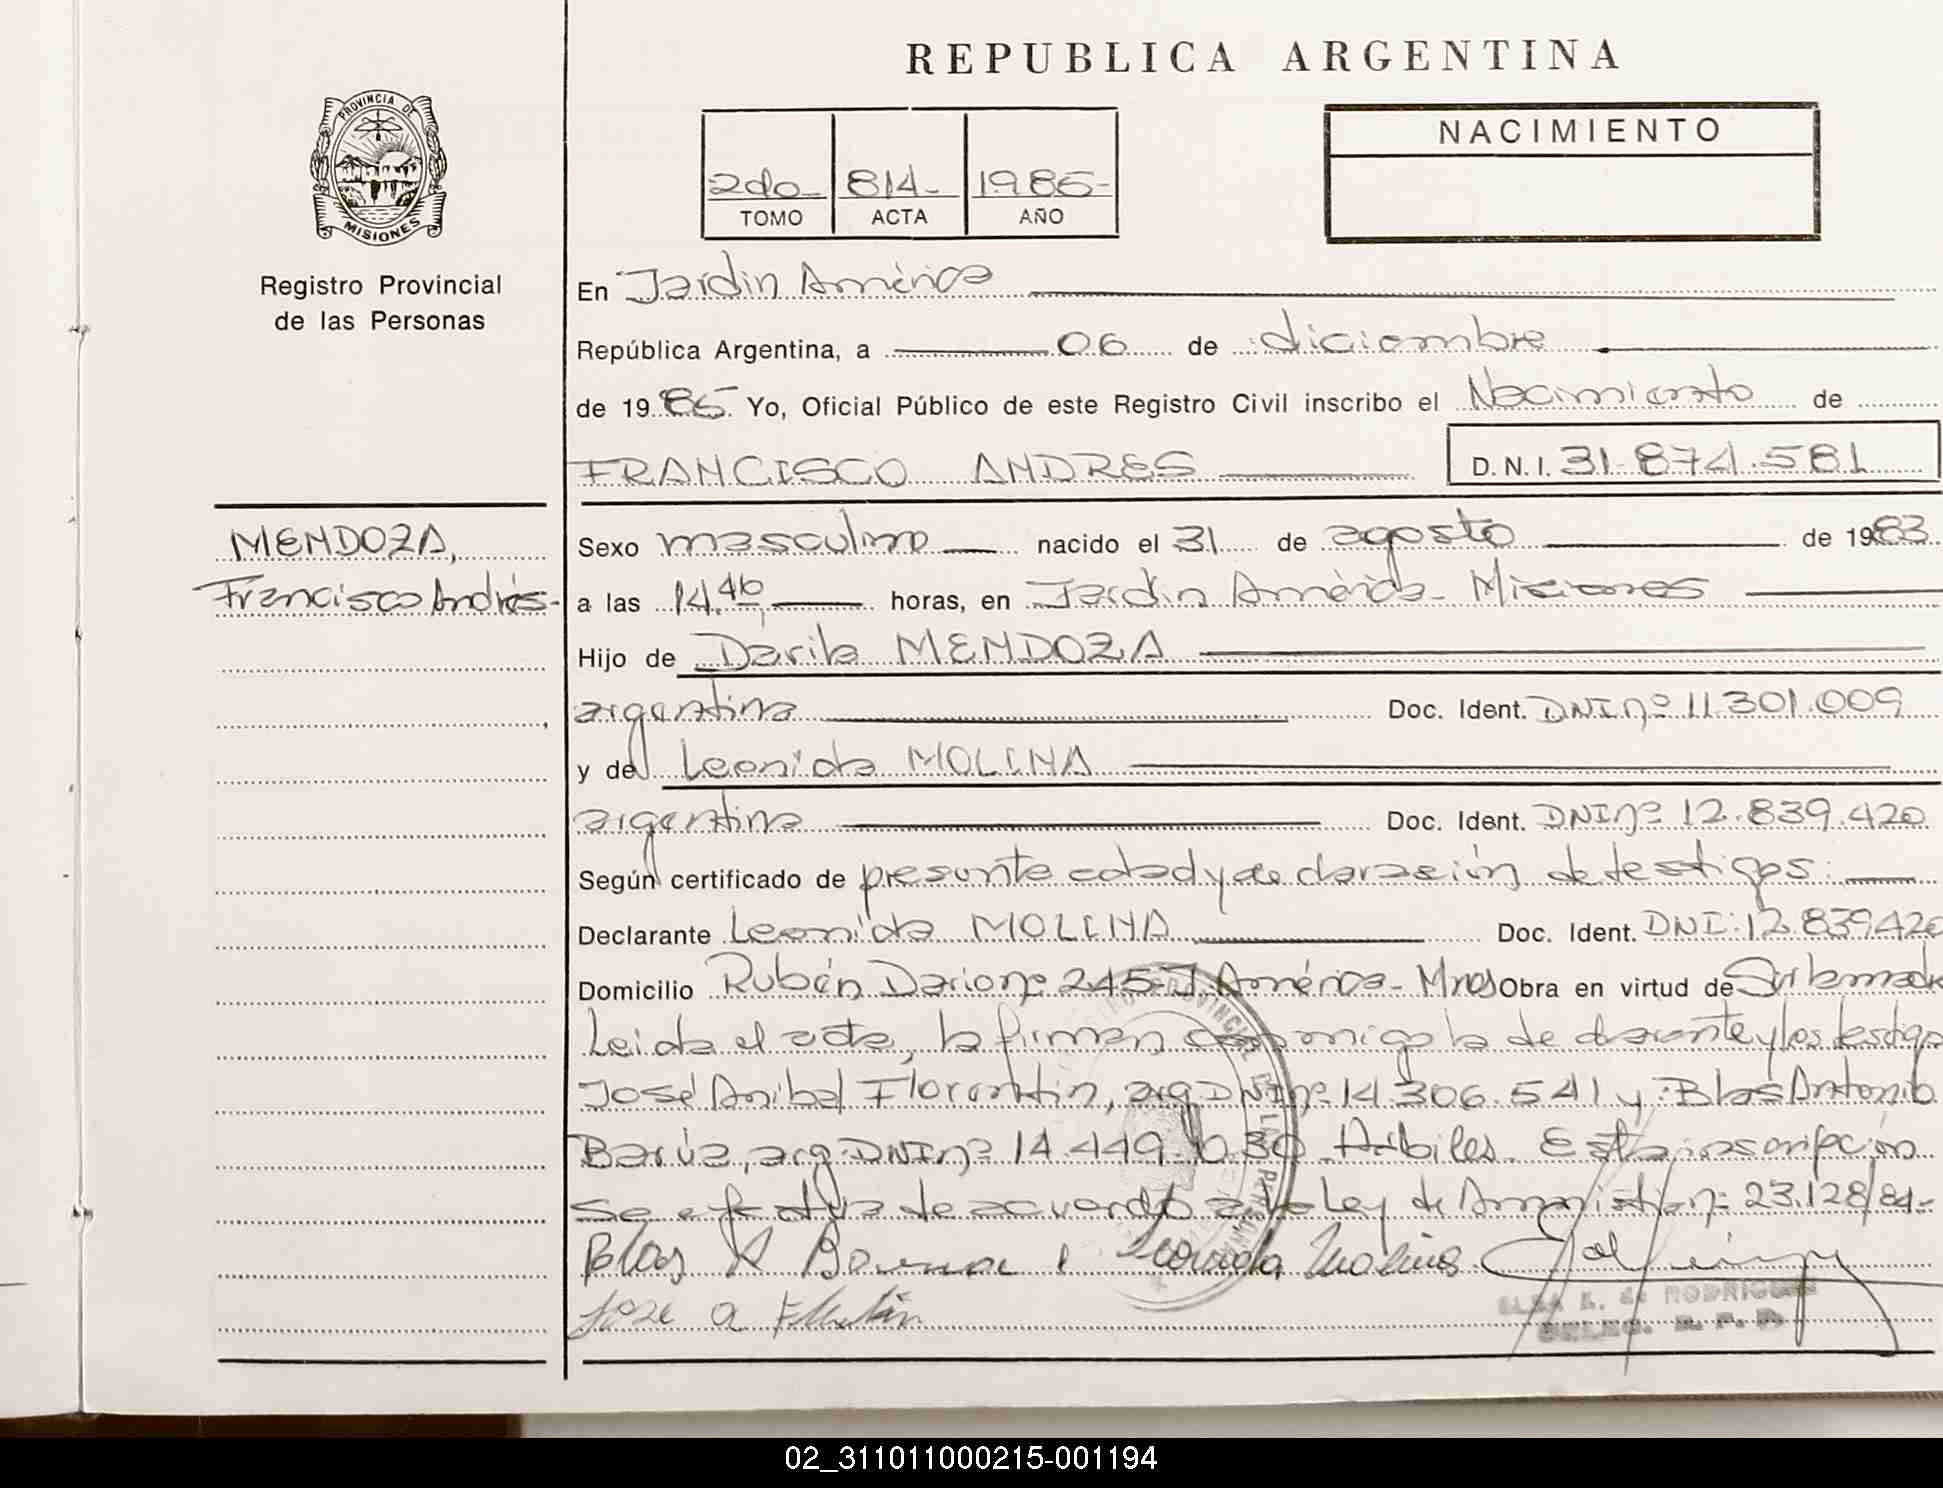 REPUBLICA ARGENTINA
PROVINCIA DE
MISIONES
Registro Provincial
de las Personas
2do- 814- 1985-
TOMO ACTA AÑO
NACIMIENTO
En Jardín América
República Argentina, a 06 de diciembre
de 1985 Yo, Oficial Público de este Registro Civil inscribo el Nacimiento de
FRANCISCO ANDRES D.N.I. 31.874.581
MENDOZA,
Francisco Andrés-
Sexo masculino nacido el 31 de agosto de 1983
a las 14.46 horas, en Jardín América - Misiones
Hijo de Darila MENDOZA
argentina Doc. Ident. DNI nº 11.301.009
y de Leonida MOLINA
argentina Doc. Ident. DNI nº 12.839.420
Según certificado de presunta edad y declaración de testigos.
Declarante Leonida MOLINA Doc. Ident. DNI: 12.839.420
Domicilio Rubén Dario nº 245-J. América - Mnes Obra en virtud de
Leida el acta, la firman conmigo la declarante y los testigo
José Anibal Florentín, arg. DNI nº 14.306.541 y Blas Antonio
arg. DNI nº 14.449.030 Hábiles. Esta inscripción
se efectúa de acuerdo a la Ley de Amnistía nº 23.128/84-
Blas A Leonida Molina
Jose a
RODRIGUEZ
R. P. P.
02_311011000215-001194